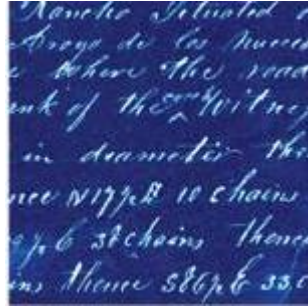 Rancho Situated
Arroyo de los Nueces
where the road
nk of the Witnes
in diameter the
nce N 17½ E 10 chains
½ E 38 chains thence
ins thence S 86½ E 33.